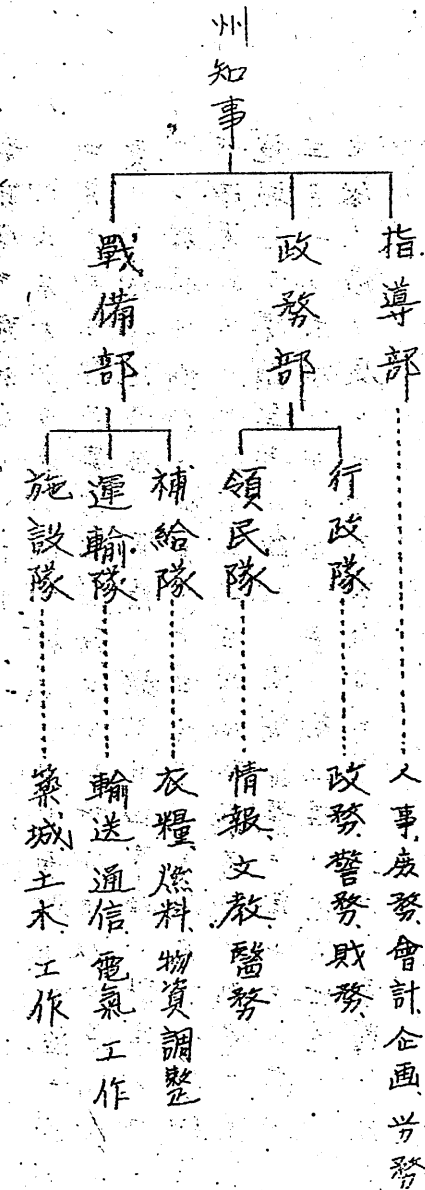 州知事
指導部
人事、庶務、會計、企画、労務
政務部
行政隊
政務、警務、財務
領民隊
情報、文教、醫務
戰備部
補給隊
衣糧、燃料、物資調整
運輸隊
輸送、通信、電氣、工作
施設隊
築城、土木、工作